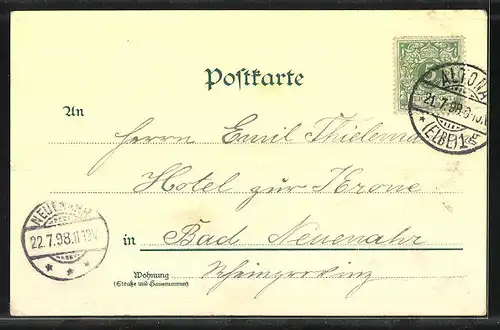 Postkarte
ALTONA
21.7.98.
(ELBE) 1
An
Herrn Emil Thielema
Hotel zur Krone
NEUENAHR
22.7.98.11-12V
in Bad Neuenahr
Rheinprovinz
Wohnung
(Straße und Hausnummer)